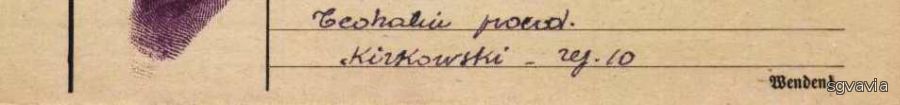 powd.
Kirkowski - rej. 10
Wenden!
sgvavia